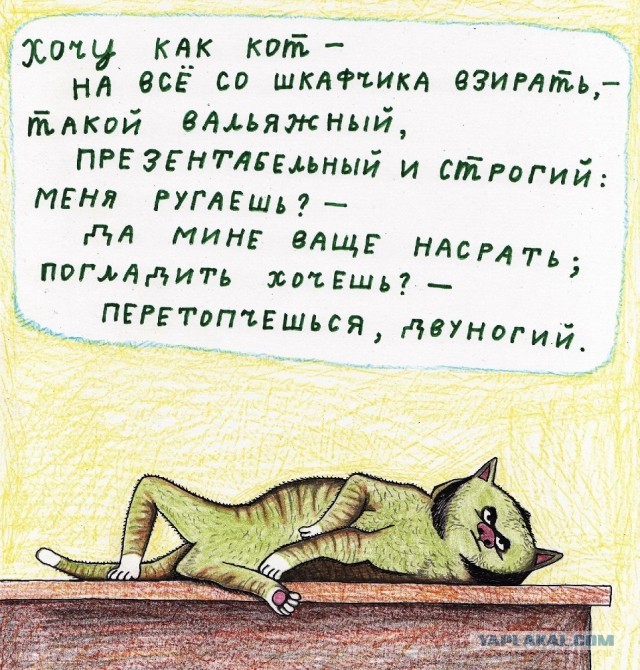 ХОЧУ КАК КОТ –
НА ВСЁ СО ШКАФЧИКА ВЗИРАТЬ,–
ТАКОЙ ВАЛЬЯЖНЫЙ,
ПРЕЗЕНТАБЕЛЬНЫЙ И СТРОГИЙ:
МЕНЯ РУГАЕШЬ? –
ДА МИНЕ ВАЩЕ НАСРАТЬ;
ПОГЛАДИТЬ ХОЧЕШЬ? –
ПЕРЕТОПЧЕШЬСЯ, ДВУНОГИЙ.
YAPLAKAL.COM